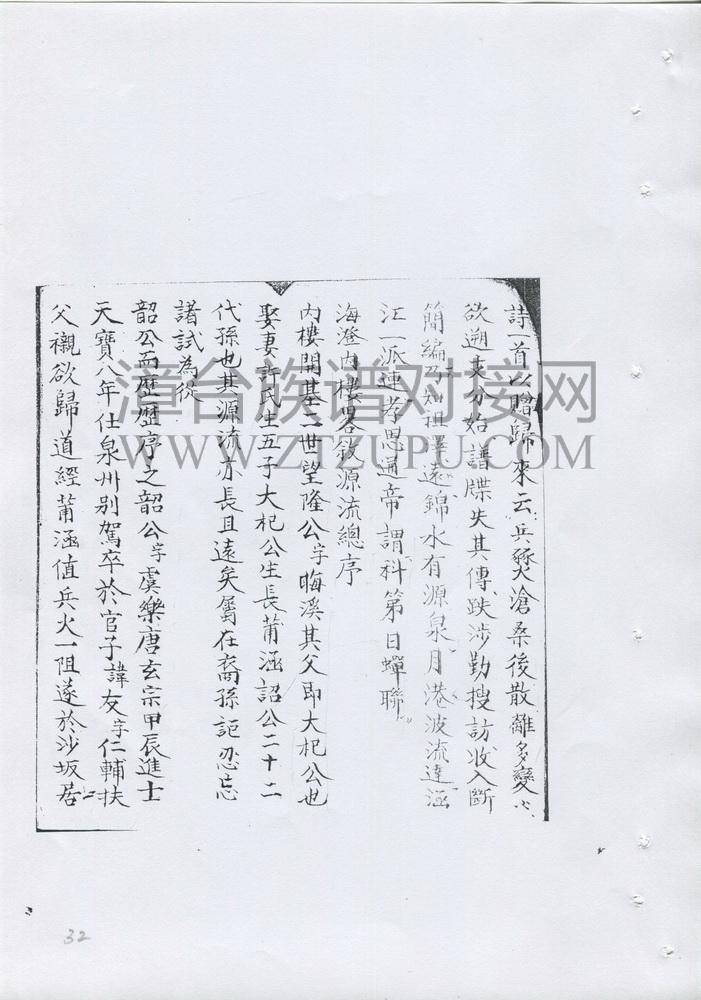 詩一首以贈歸來云兵燹滄桑後散離多變心
欲遡支分始譜牒失其傳跌涉勤搜訪收入斷
簡編乃知祖澤遠錦水有源泉月港波流達涵
江一派連孝思通帝謂科第日蟬聯
海澄內樓畧敘源流總序
內樓開基一世望隆公字晦溪其父即大杞公也
娶妻許氏生五子大杞公生長莆涵詔公二十二
代孫也其源流亦長且遠矣屬在裔孫詎忍忘
諸試為從
韶公而歷歷序之韶公字虞樂唐玄宗甲辰進士
天寶八年仕泉州別駕卒於官子諱友字仁輔扶
父櫬欲歸道經莆涵值兵火一阻遂於沙坂居
漳台族谱对接网
WWW.ZTZUPU.COM
32